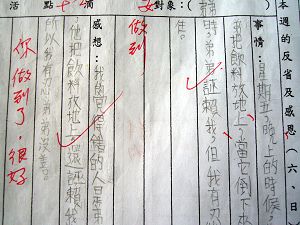 本週的反省及感恩(六、日
對象:(
事情:星期五,晚上的時候,
我把飲料放地上,當它倒下來
時,弟弟誣賴我,但我有忍
住。
做到
感想:我覺得錯的人是弟
他把飲料放地上還誣賴我
所以我有
你做到了,很好
活
點
滴